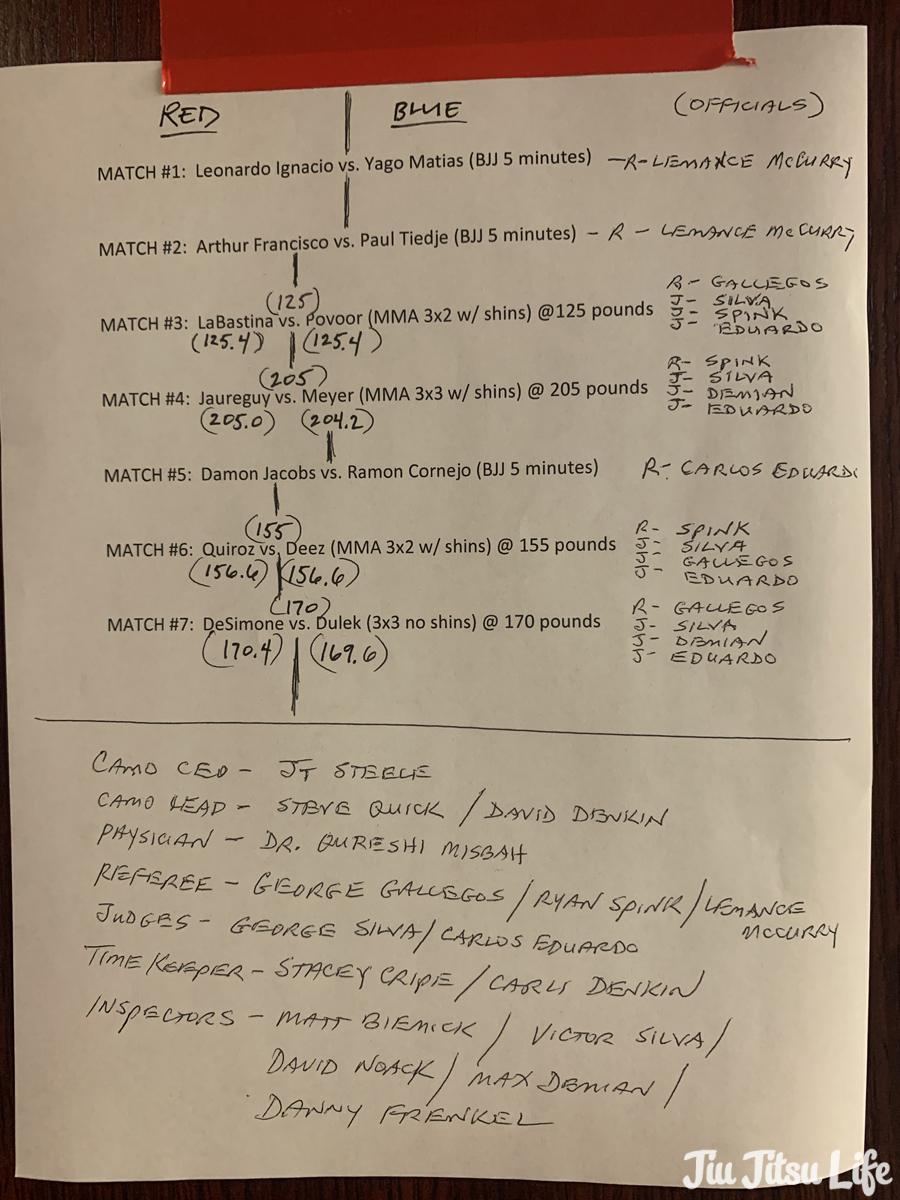 RED BLUE (OFFICIALS)
MATCH #1: Leonardo Ignacio vs. Yago Matias (BJJ 5 minutes) – R-LEMANCE McCURRY
MATCH #2: Arthur Francisco vs. Paul Tiedje (BJJ 5 minutes) – R – LEMANCE McCURRY
(125)
MATCH #3: LaBastina vs. Povoor (MMA 3x2 w/ shins) @125 pounds
(125.4) (125.4)
R- GALLEGOS
J- SILVA
J- SPINK
J- EDUARDO
(205)
MATCH #4: Jaureguy vs. Meyer (MMA 3x3 w/ shins) @ 205 pounds
(205.0) (204.2)
R- SPINK
J- SILVA
J- DEMIAN
J- EDUARDO
MATCH #5: Damon Jacobs vs. Ramon Cornejo (BJJ 5 minutes) R- CARLOS EDUARDO
(155)
MATCH #6: Quiroz vs. Deez (MMA 3x2 w/ shins) @ 155 pounds
(156.6) (156.6)
R- SPINK
J- SILVA
J- GALLEGOS
J- EDUARDO
(170)
MATCH #7: DeSimone vs. Dulek (3x3 no shins) @ 170 pounds
(170.4) (169.6)
R- GALLEGOS
J- SILVA
J- DEMIAN
J- EDUARDO
CAMO CEO – JT STEELE
CAMO LEAD – STEVE QUICK / DAVID DENKIN
PHYSICIAN – DR. QURESHI MISBAH
REFEREE – GEORGE GALLEGOS / RYAN SPINK / LEMANCE
McCURRY
JUDGES – GEORGE SILVA / CARLOS EDUARDO
TIME KEEPER – STACEY CRIPE / CARLI DENKIN
INSPECTORS – MATT BIEMICK / VICTOR SILVA /
DAVID NOACK / MAX DEMIAN /
DANNY FRENKEL
Jiu Jitsu Life